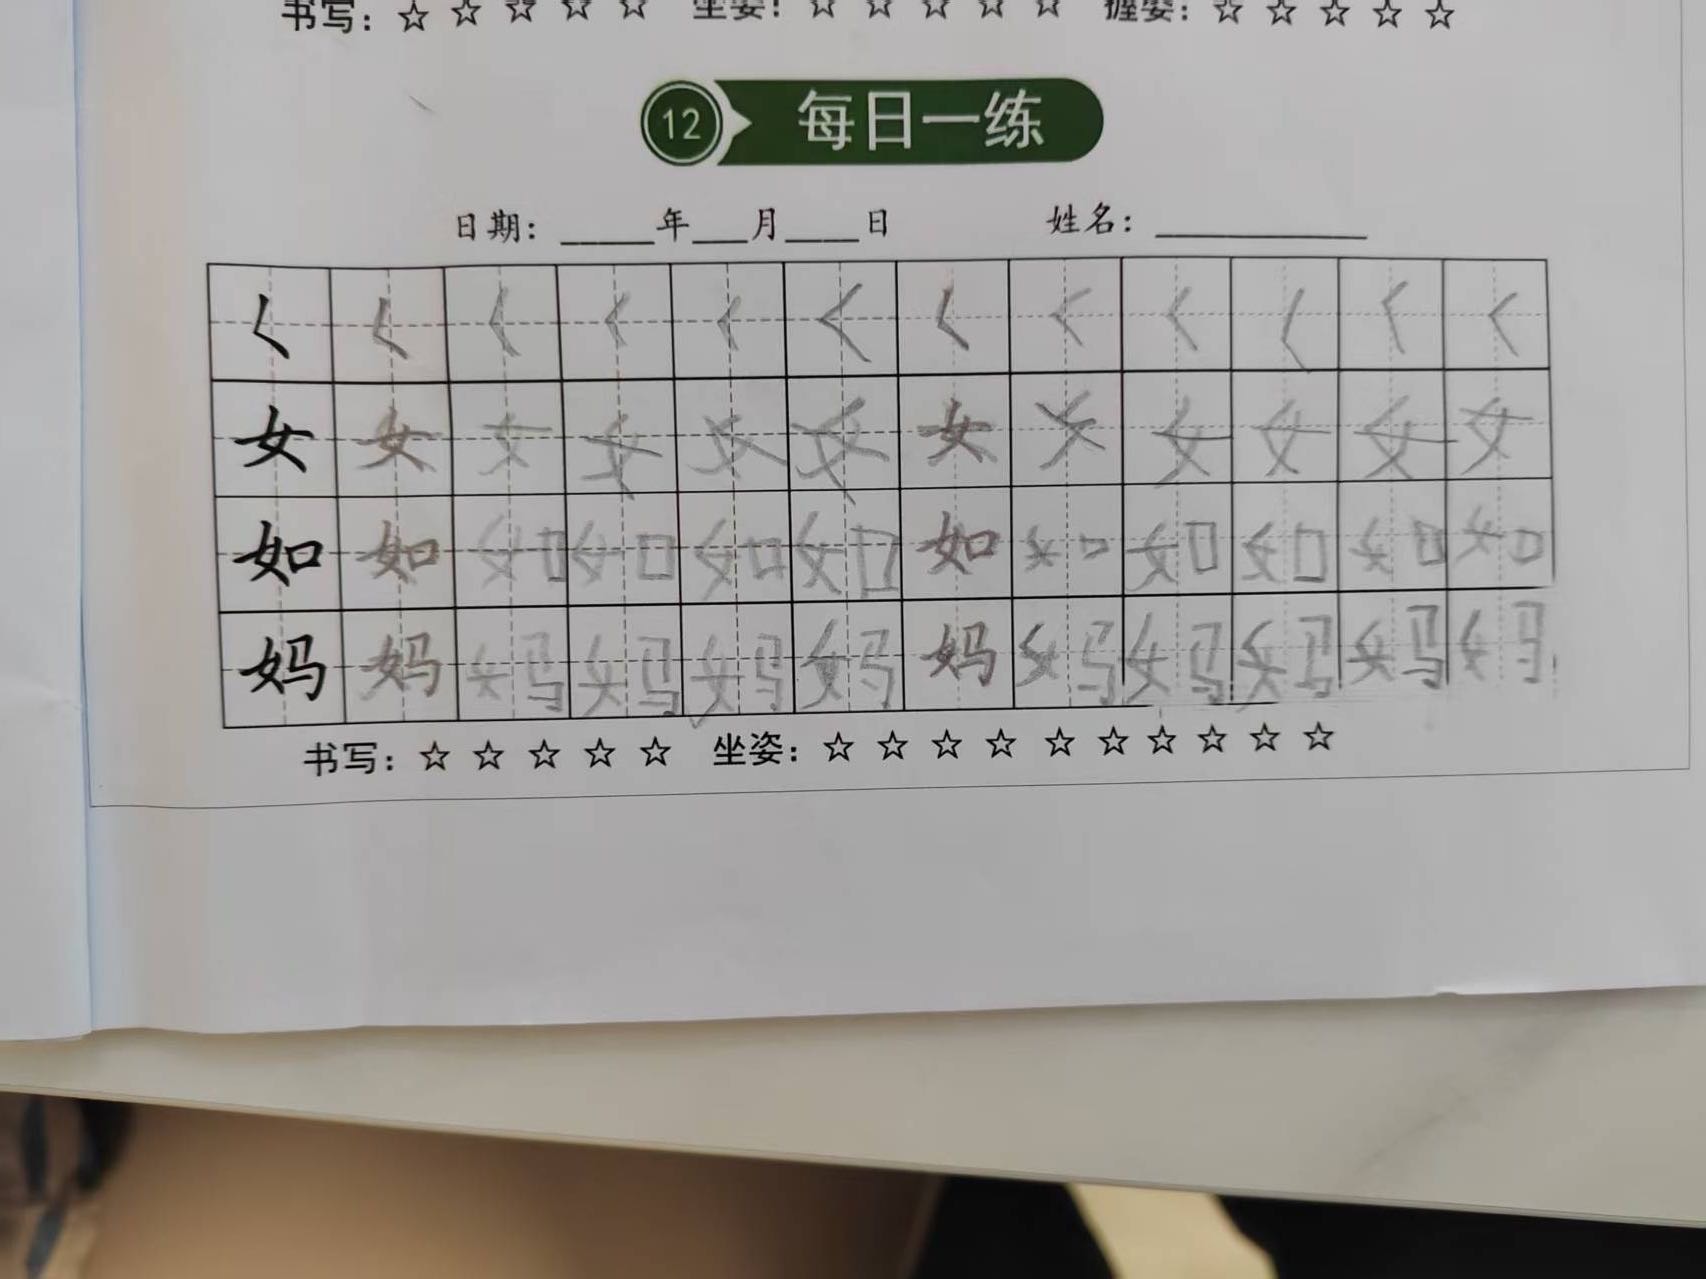 书写：☆ ☆ ☆ ☆ ☆ 坐姿：☆ ☆ ☆ ☆ ☆ 握姿：☆ ☆ ☆ ☆ ☆
12 每日一练
日期：_____年___月____日 姓名：___________
く く く く く く く く く く く く
女 女 女 女 女 女 女 女 女 女 女 女
如 如 如 如 如 如 如 如 如 如 如 如
妈 妈 妈 妈 妈 妈 妈 妈 妈 妈 妈 妈
书写：☆ ☆ ☆ ☆ ☆ 坐姿：☆ ☆ ☆ ☆ ☆ ☆ ☆ ☆ ☆ ☆